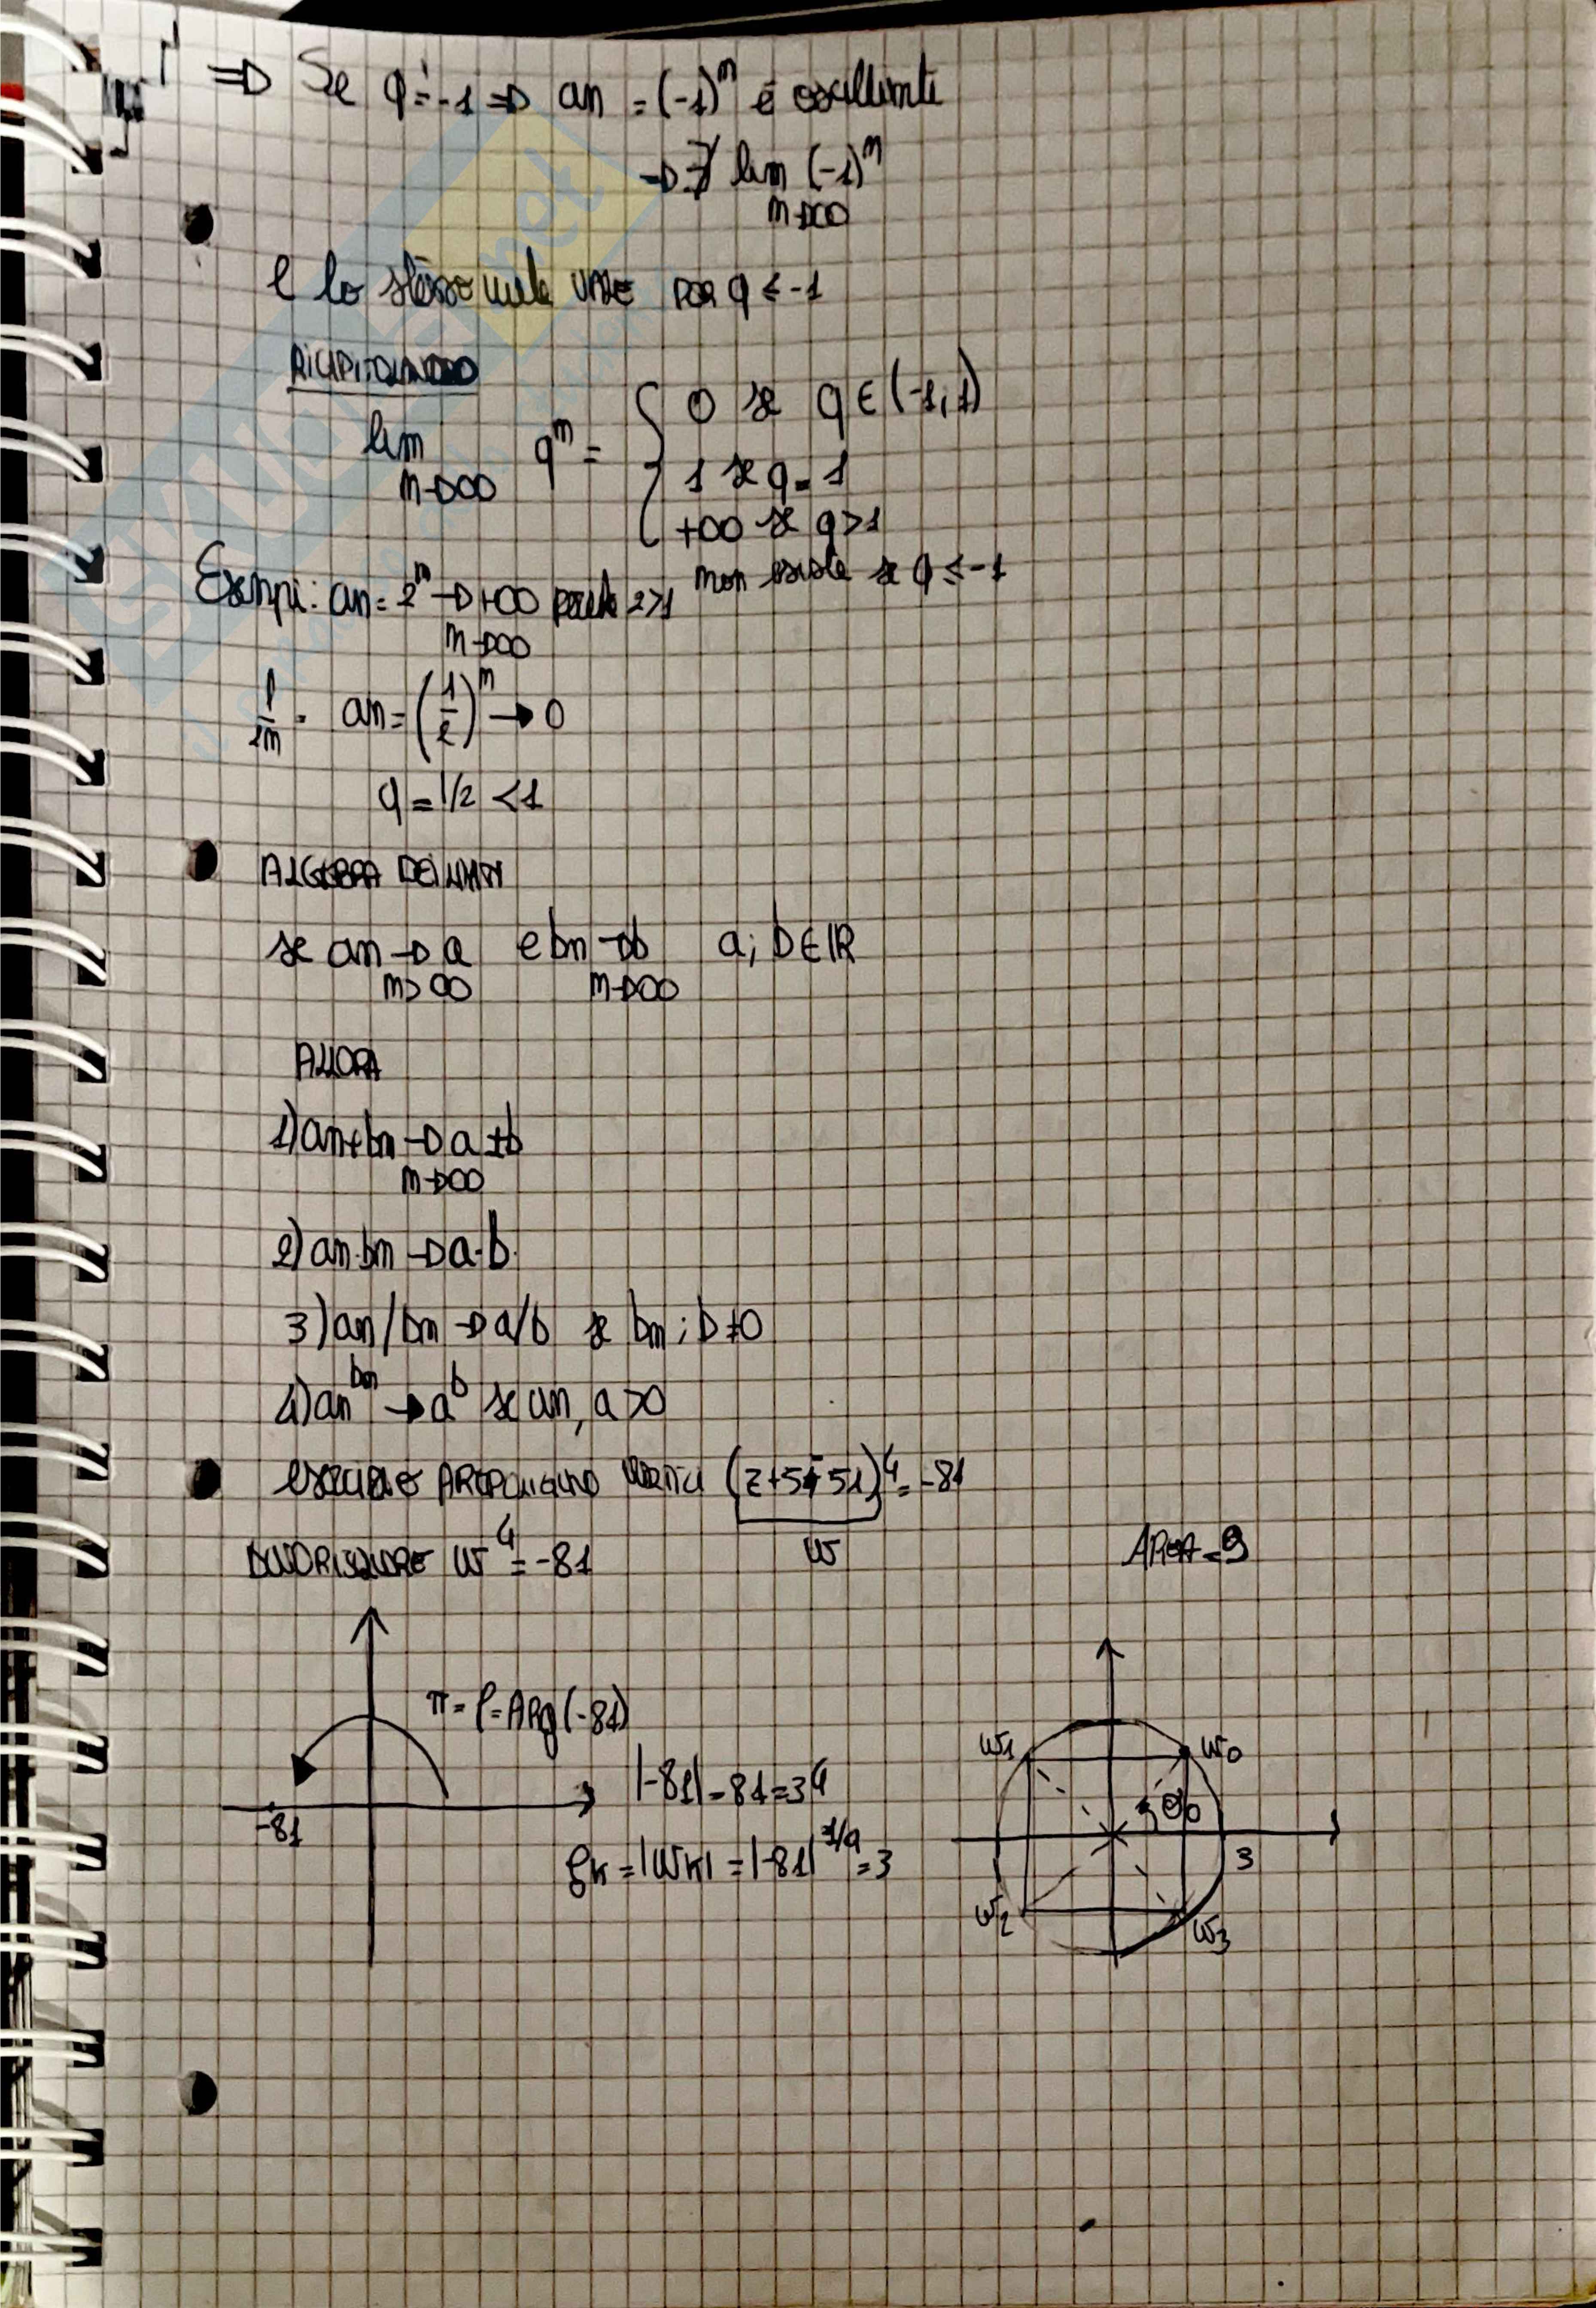 ⇒ Se q=-1 ⇒ an = (-1)^n è oscillante
→ ∄ lim (-1)^n
n→∞
e lo stesso vale per q ≤ -1
RICAPITOLANDO
lim q^n = { 0 se q ∈ (-1,1)
n→∞
1 se q=1
+∞ se q>1
non esiste se q ≤ -1
Esempi: an = 2^n → +∞ perché 2>1
n→∞
1/2n . an = (1/2)^n → 0
q = 1/2 < 1
ALGEBRA DEI LIMITI
se an → a e bn → b a; b ∈ ℝ
n→∞ n→∞
ALLORA
1) an+bn → a±b
n→∞
2) an·bn → a·b
3) an/bn → a/b se bn; b≠0
4) an^bn → a^b se an, a>0
esercizio vertici (z+5+5i)^4 = -81
w
w^4 = -81
AREA = 9
π = φ = Arg(-81)
-81
|-81| = 81 = 3^4
ρk = |wk| = |-81|^1/4 = 3
w1 w0
θ0
3
w2 w3